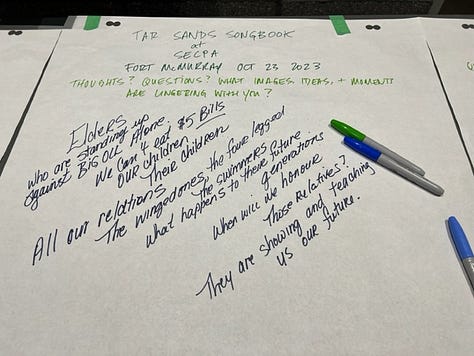 TAR SANDS SONGBOOK
at
SECPA
FORT McMURRAY OCT 23 2023
THOUGHTS? QUESTIONS? WHAT IMAGES, IDEAS, + MOMENTS
ARE LINGERING WITH YOU?
Elders
who are standing up
against BIG OIL Alone.
We can't eat $5 Bills
OUR children
Their Children
All our relations
The wingedones, the four legged
The swimmers
What happens to these future
generations
When will we honour
Those Relatives?
They are showing and teaching
us our future.